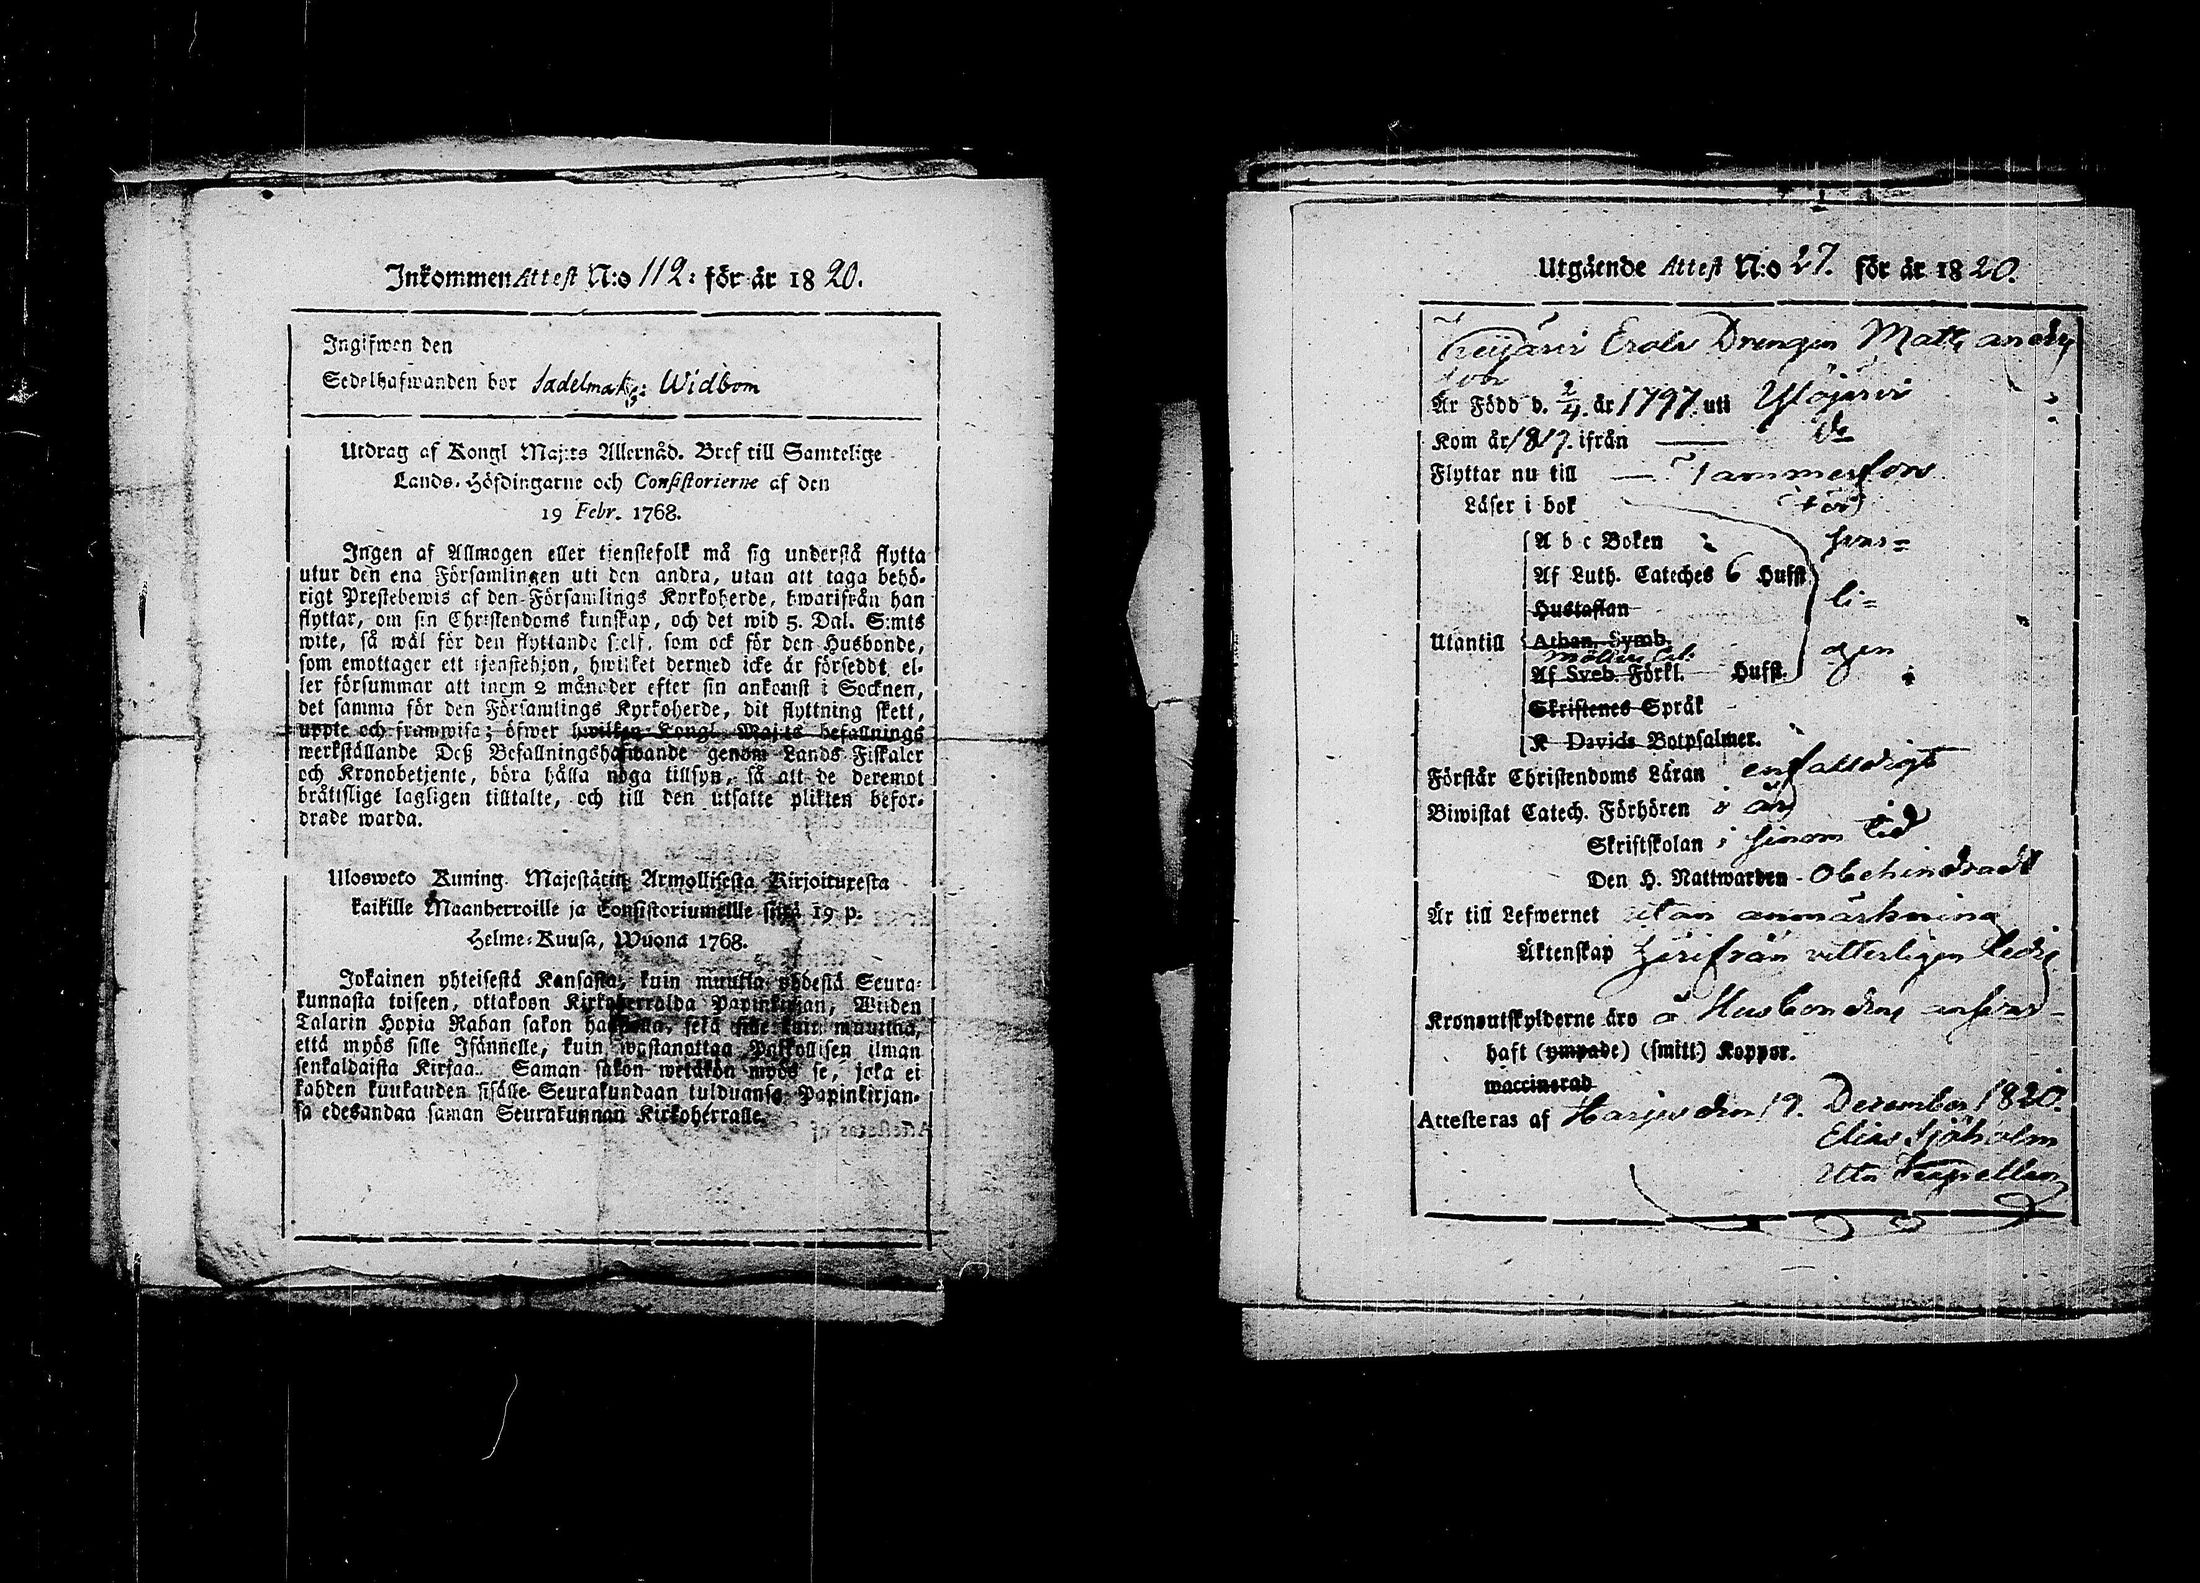 Inkommen Attest N:o 112: för år 1820.
Ingifwen den
Sedelhafwanden bor Sadelmak: Widbom
Utdrag af Kongl Maj:ts Allernåd. Bref till Samtelige
Lands-Höfdingarne och Consistorierne af den
19 Febr. 1768.
Ingen af Allmogen eller tienstefolk må sig understå flytta
utur den ena Församlingen uti den andra, utan att taga behö-
rigt Prestebewis af den Församlings Kyrkoherde, hwarifrån han
flyttar, om sin Christendoms kunskap, och det wid 5. Dal. S:mts
wite, så wäl för den flyttande sielf, som ock för den Husbonde,
som emottager ett tjenstehjon, hwilket dermed icke är försedt, el-
ler försummar att inom 2 månader efter sin ankomst i Socknen,
det samma för den Församlings Kyrkoherde, dit flyttning skett,
uppte och framwisa; öfwer hwilken Kongl. Maj:ts befallnings
werkställande Deß Befallningshafwande genom Lands Fiskaler
och Kronobetjente, böra hålla noga tillsyn, så att de deremot
bråttslige lagligen tilltalte, och till den utsatte plikten befor-
drade warda.
Ulosweto Kuning. Majestätin Armollisesta Kirjoituxesta
kaikille Maanherroille ja Consistoriumeille siitä 19 p.
Helme-Kuusa, Wuona 1768.
Jokainen yhteisestä Kansasta, kuin muutta yhdestä Seura-
kunnasta toiseen, ottakoon Kirkoherralda Papinkirjan, Wiiden
Talarin Hopia Rahan sakon haastolla, sekä sille kuin muutta,
että myös sille Isännelle, kuin wastanottaa Palkollisen ilman
senkaldaista Kirjaa. Saman sakon wetäkön myös se, joka ei
kahden kuukauden sisälle Seurakundaan tulduansa Papinkirjan-
sa edesandaa saman Seurakunnan Kirkoherralle.
Utgående Attest N:o 27. för år 1820.
Erola Drengen Matts Anders
Är Född d. 2/4. år 1797. uti Ylöjärvi
Kom år 1817. ifrån — Do
Flyttar nu till — Tammerfors
Läser i bok för
A b c Boken svar=
Af Luth. Cateches 6 Hufst
li=
Hustaflan
Utantill Athan. Symb.
agen
Af Sveb. Förkl. Hufst.
Skriftenes Språk
K Davids Botpsalmer.
Förstår Christendoms Läran enfalldigt
Biwistat Catech. Förhören i år
Skriftskolan i sinom tid
Den H. Nattwarden Obehindradt
Är till Lefwernet utan anmärkning
Äktenskap Härifrån vitterligen ledig
Kronoutskylderne äro å Husbondens ansvar
haft (ympade) (smitt.) Koppor.
waccinerad
Attesteras af Harju den 19. December 1820.
Elias Sjöholm